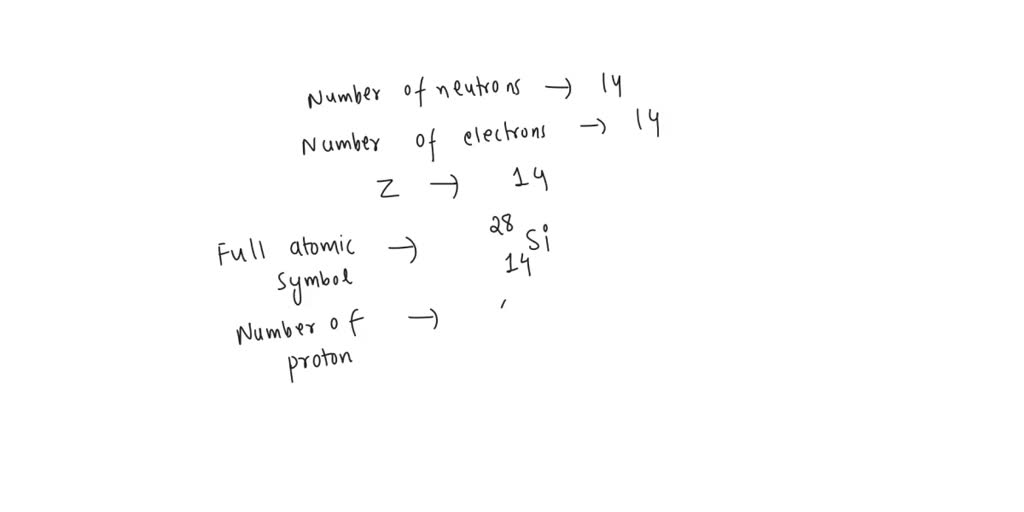 Number of neutrons → 14
Number of electrons → 14
Z → 14
Full atomic symbol → 28 14 Si
Number of proton →